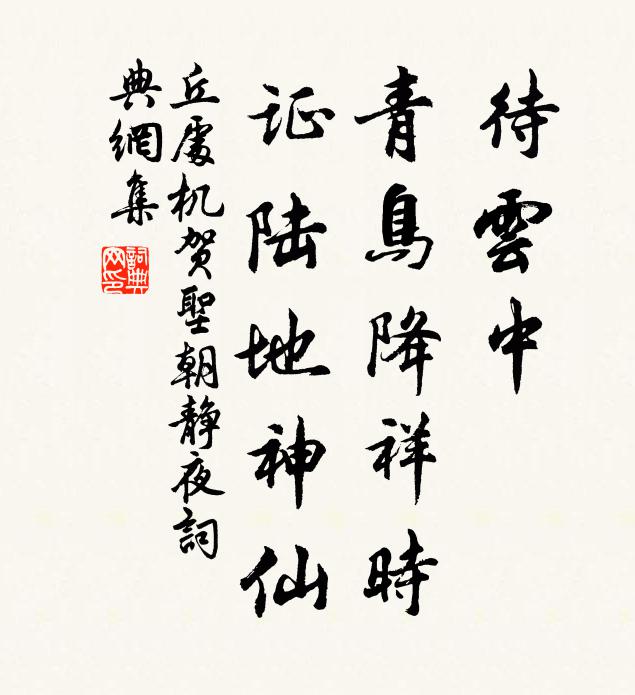 待雲中
青鳥降祥時
证陆地神仙
丘處机贺聖朝静夜詞
典網集
詞典
网印